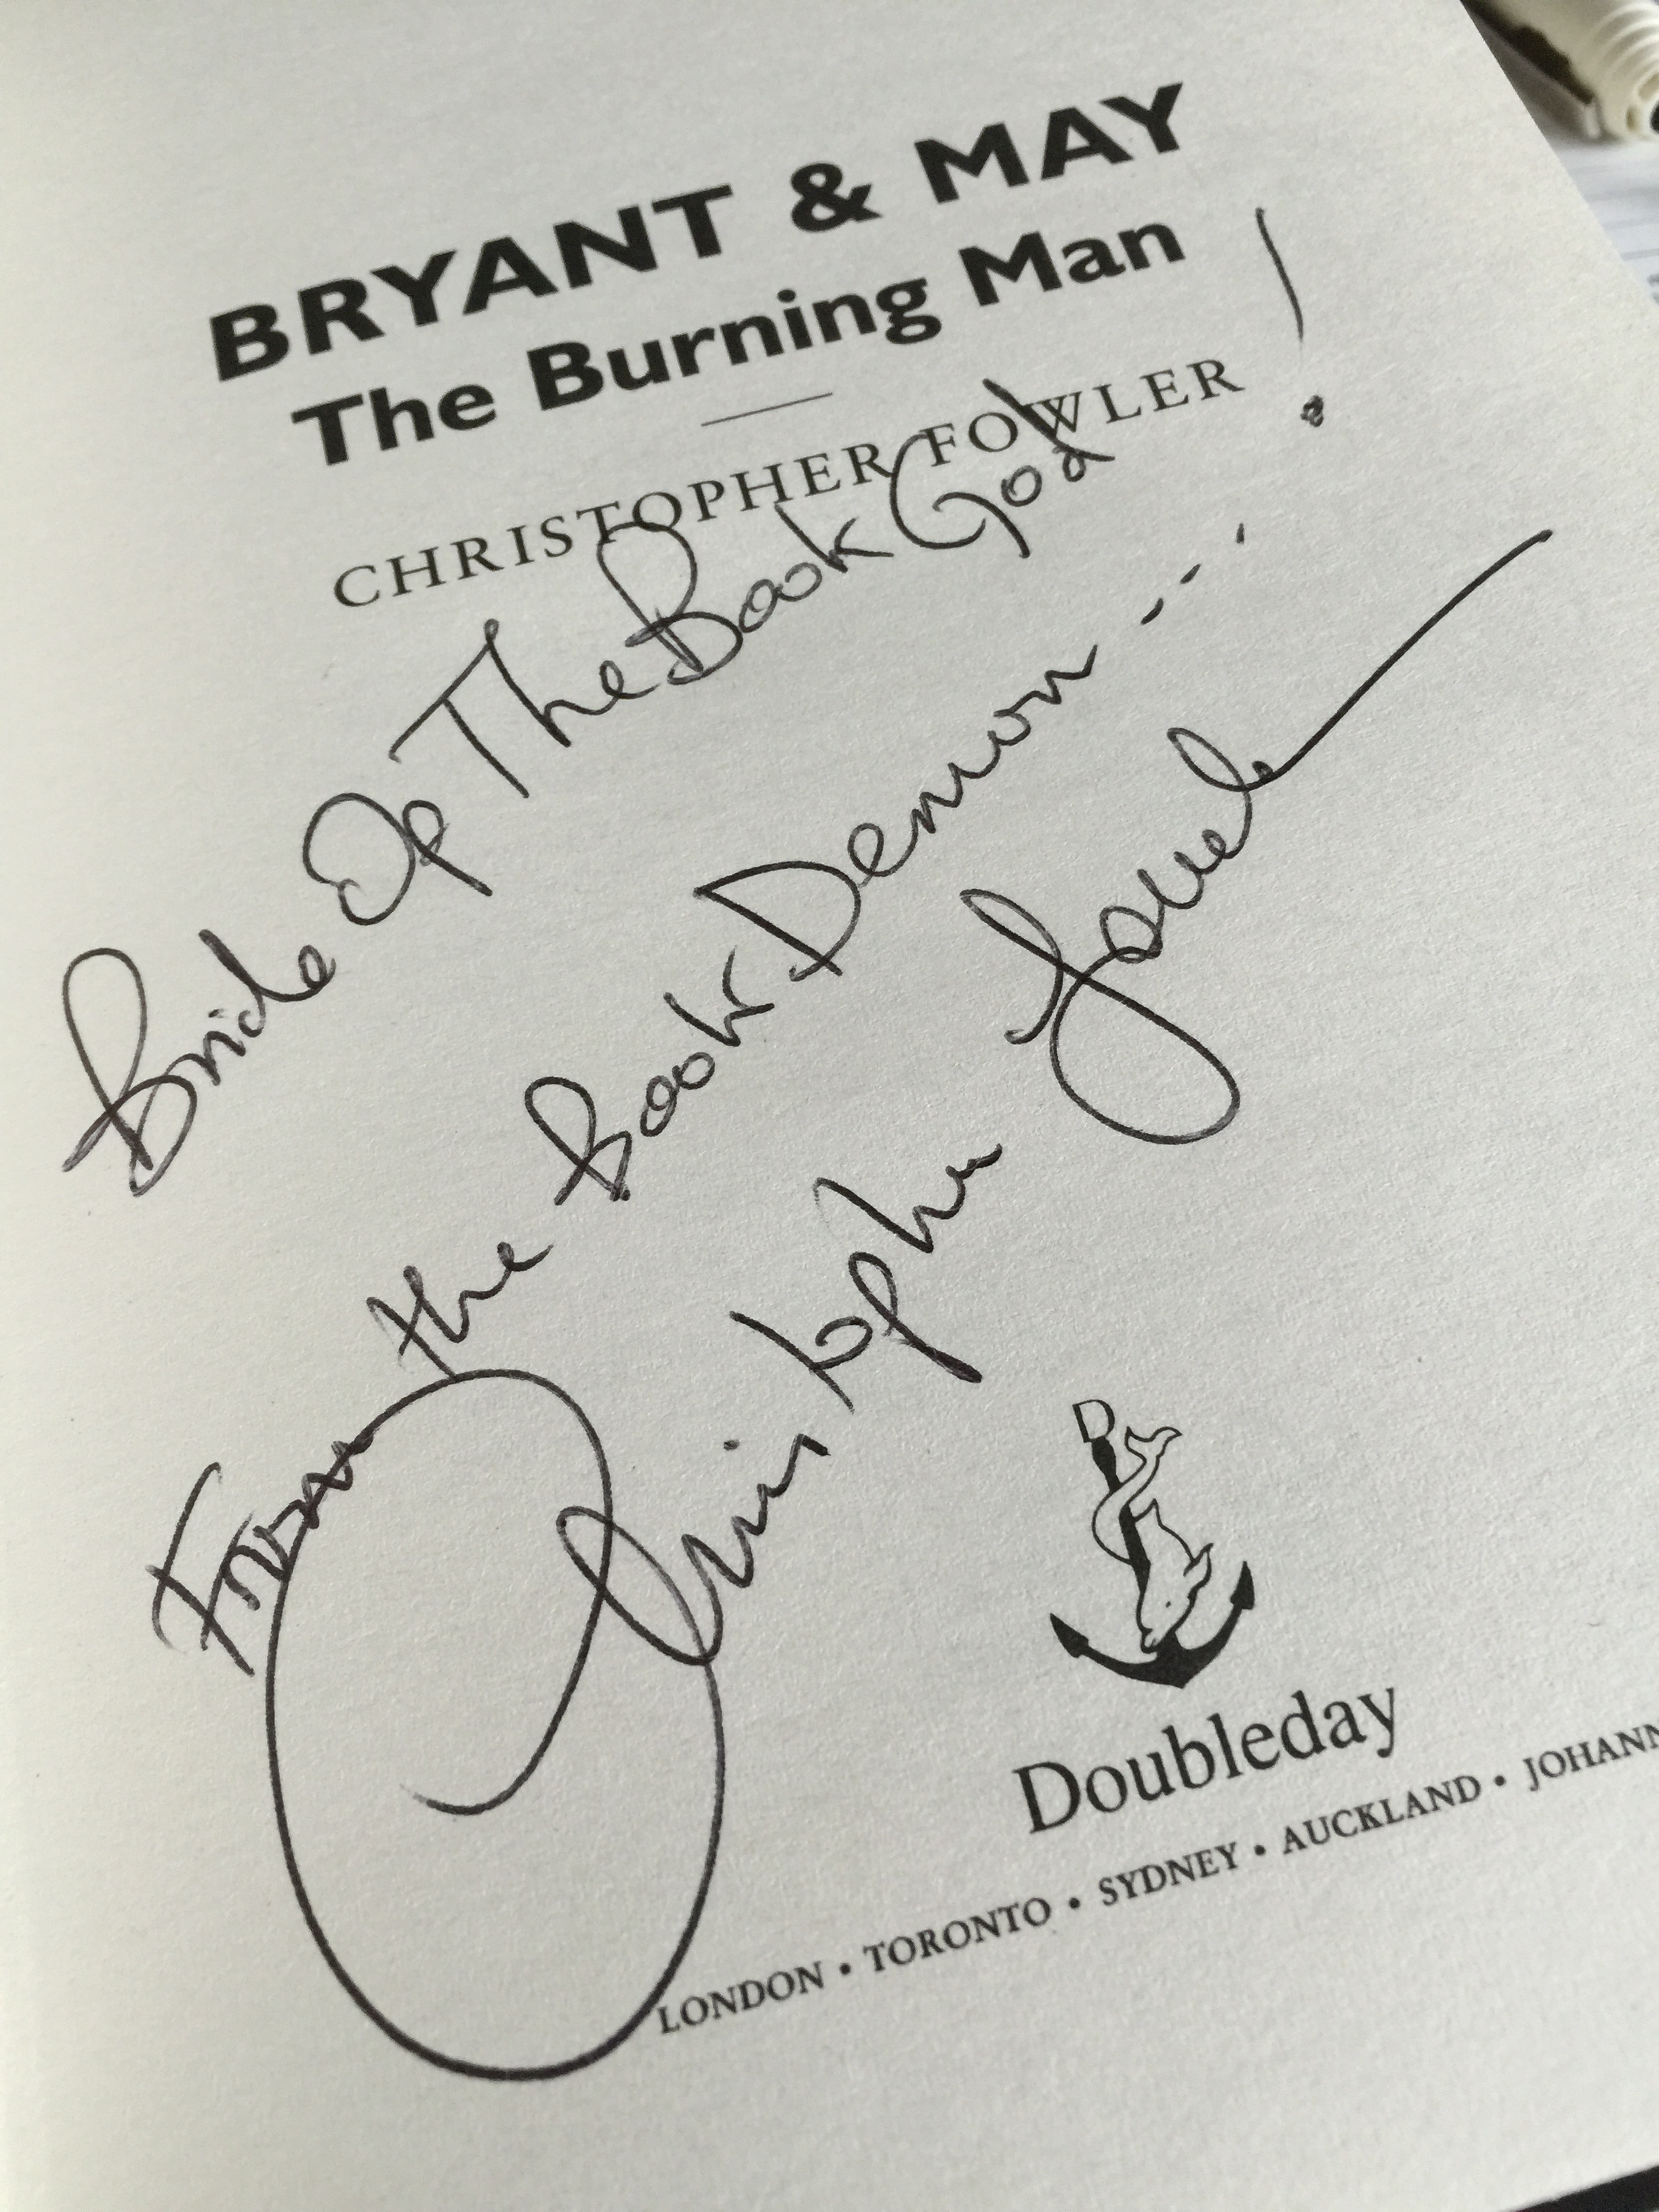 BRYANT & MAY
The Burning Man
CHRISTOPHER FOWLER
Bride Of The Book God!
From the Book Demon...
Christopher Fowler
D
Doubleday
LONDON • TORONTO • SYDNEY • AUCKLAND • JOHANN